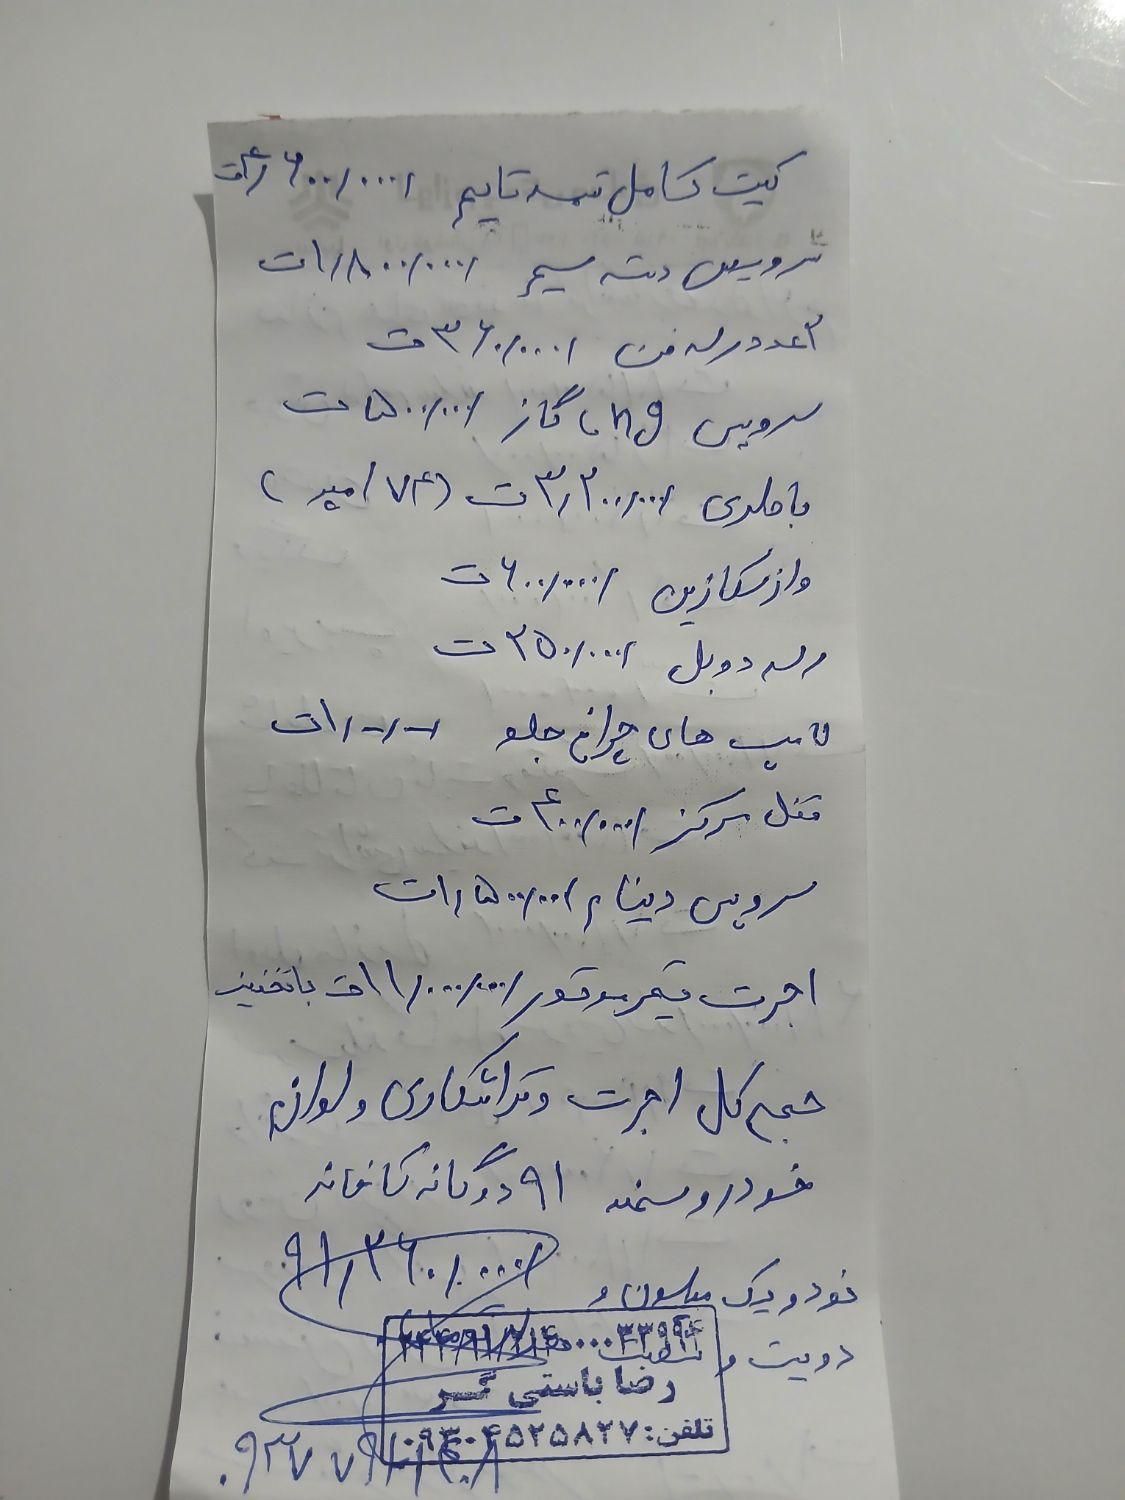 کیت کامل تسمه تایم ۴٫۶۰۰/۰۰۰/ت
سرویس دسته سیم ۱٫۸۰۰/۰۰۰/ت
۲عدد رله فن ۳۶۰/۰۰۰/ت
سرویس cng با گاز ۵۰۰/۰۰۰/ت
باطری ۳٫۲۰۰/۰۰۰/ت (۷۴ آمپر)
واژسکازین ۶۰۰/۰۰۰/ت
رله دوبل ۲۵۰/۰۰۰/ت
لامپ های چراغ جلو ۱٫-/-/ت
قفل مرکز ۴۰۰/۰۰۰/ت
سرویس دینام ۱٫۵۰۰/۰۰۰/ت
اجرت تعمیر موتور ۱۱/۰۰۰/۰۰۰/ت با تخفیف
جمع کل اجرت و تراشکاری و لوازم
خودرو سمند ۹۱ دوگانه کارخانه
۹۱٫۲۶۰/۰۰۰/
نود و یک میلیون و
دویست و شصت
رضا باستی گر
تلفن: ۰۹۳۰۴۵۲۵۸۲۷